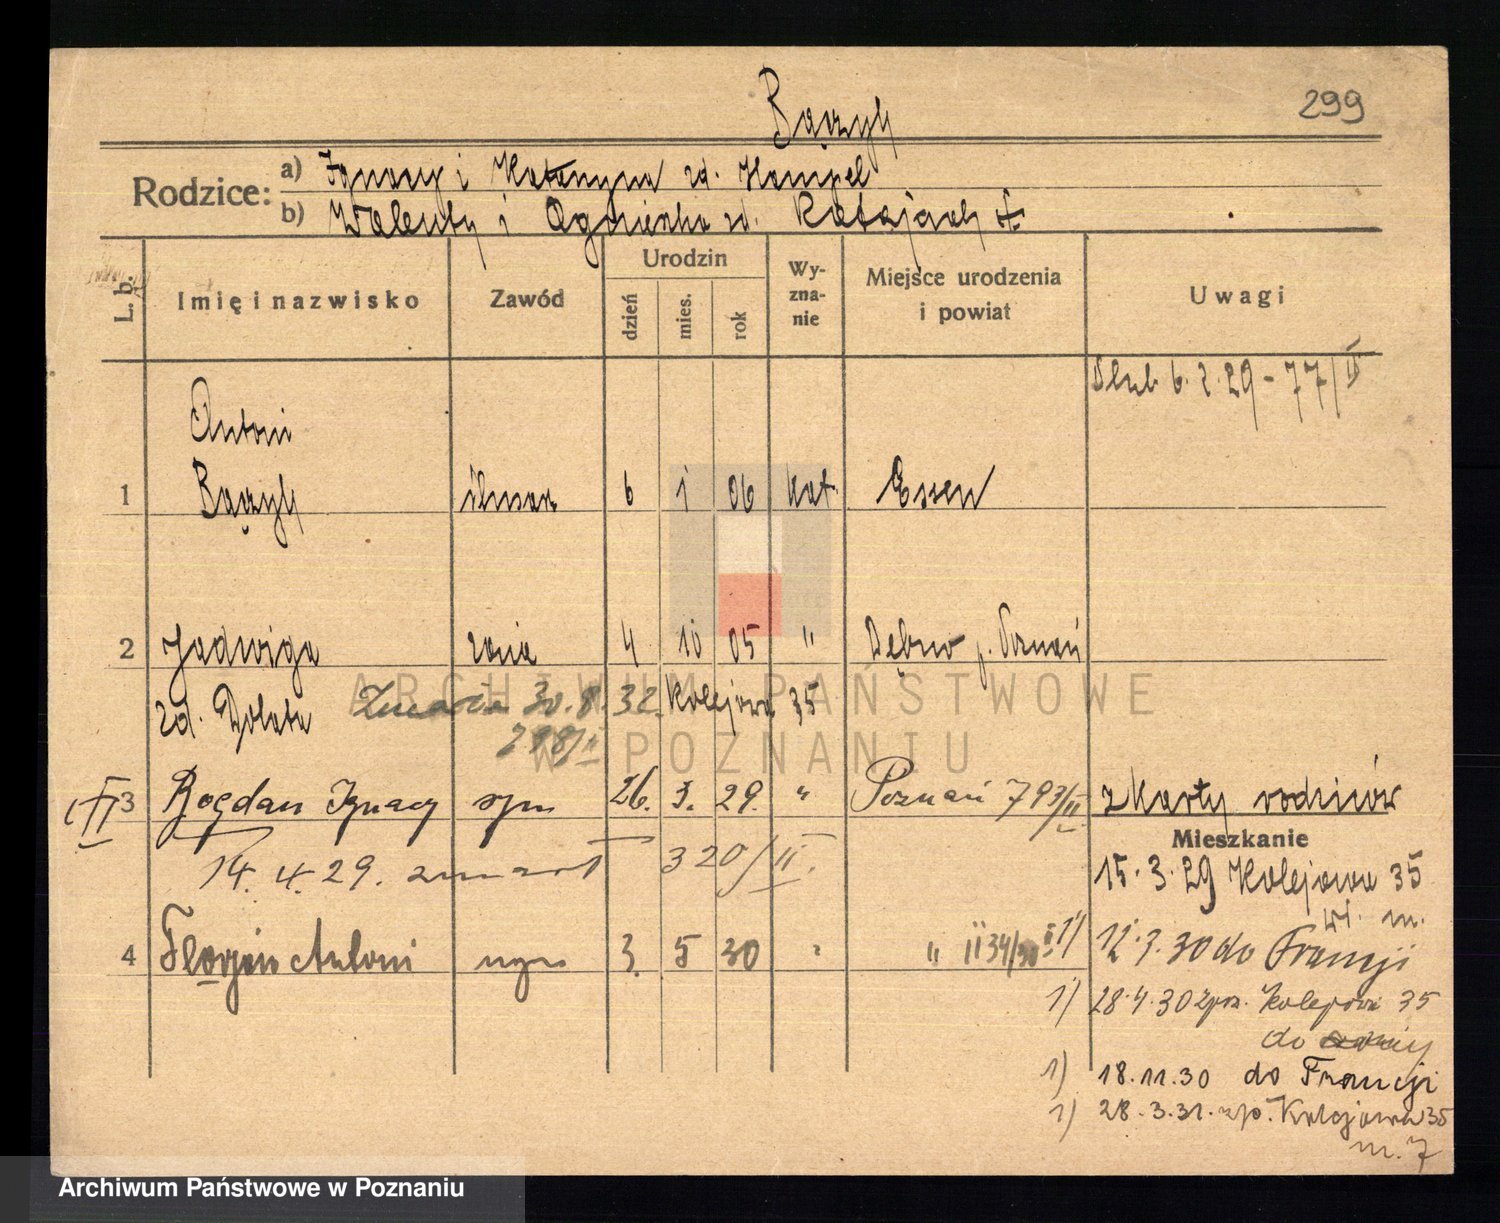 299
Bączyk
Rodzice:
a) Ignacy i Katarzyna zd. Hampel
b) Walenty i Agnieszka zd. Ratajczak
L. b.
Imię i nazwisko
Zawód
Urodzin
dzień
mies.
rok
Wy-
zna-
nie
Miejsce urodzenia
i powiat
Uwagi
Ślub 6.2.29 - 77/II
Antoni
1 Bączyk ślusarz 6 1 06 kat. Essen
2 Jadwiga żona 4 10 05 " Dębno p. Poznań
zd. Dolata Zmarła 30.8.32. Kolejowa 35
798/II
III 3 Bogdan Ignacy syn 26. 3. 29. " Poznań 793/II z karty rodziców
14. 4. 29. zmarł 320/II.
Mieszkanie
15.3.29 Kolejowa 35
m.
4 Florjan Antoni syn 3. 5 30 " II34/30
1) 12.3.30 do Francji
1) 28.4.30 zpoz. Kolejowa 35
do
1) 18.11.30 do Francji
1) 28.3.31. zp. Kolejowa 35
m. 7
ARCHIWUM PAŃSTWOWE
W POZNANIU
Archiwum Państwowe w Poznaniu